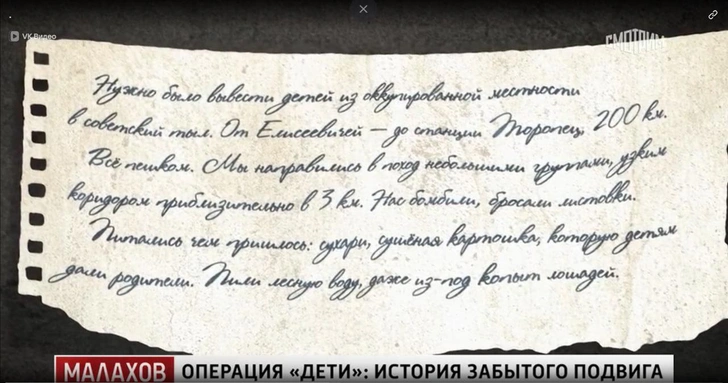 VK Видео
СМОТРИМ
Нужно было вывести детей из оккупированной местности
в советский тыл. От Елисеевичей — до станции Торопец, 200 км.
Всё пешком. Мы направились в поход небольшими группами, узким
коридором приблизительно в 3 км. Нас бомбили, бросали листовки.
Питались чем пришлось: сухари, сушёная картошка, которую детям
дали родители. Пили лесную воду, даже из-под копыт лошадей.
МАЛАХОВ ОПЕРАЦИЯ «ДЕТИ»: ИСТОРИЯ ЗАБЫТОГО ПОДВИГА